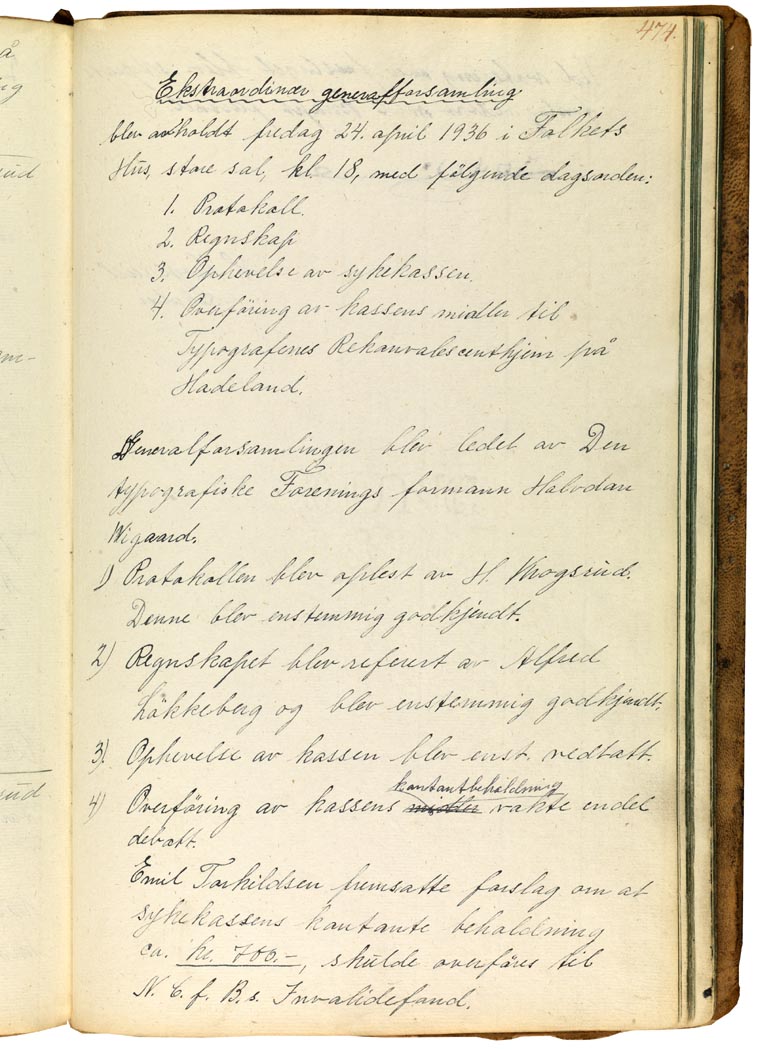 474.
Ekstraordinær generalforsamling
blev avholdt fredag 24. april 1936 i Folkets
Hus, store sal, kl. 18, med følgende dagsorden:
1. Protokoll.
2. Regnskap
3. Ophevelse av sykekassen.
4. Overföring av kassens midler til
Typografenes Rekonvalescenthjem på
Hadeland.
Generalforsamlingen blev ledet av Den
typografiske Forenings formann Halvdan
Wigaard.
1) Protokollen blev oplest av H. Krogsrud.
Denne blev enstemmig godkjendt.
2) Regnskapet blev referert av Alfred
Løkkeberg og blev enstemmig godkjendt.
3) Ophevelse av kassen blev enst. vedtatt.
kontantbeholdning
4) Overföring av kassens midler vakte endel
debatt.
Emil Torkildsen fremsatte forslag om at
sykekassens kontante beholdning
ca. kr. 700.-, skulde overføres til
N. C. f. B.s. Invalidefond.
å
sud
sud